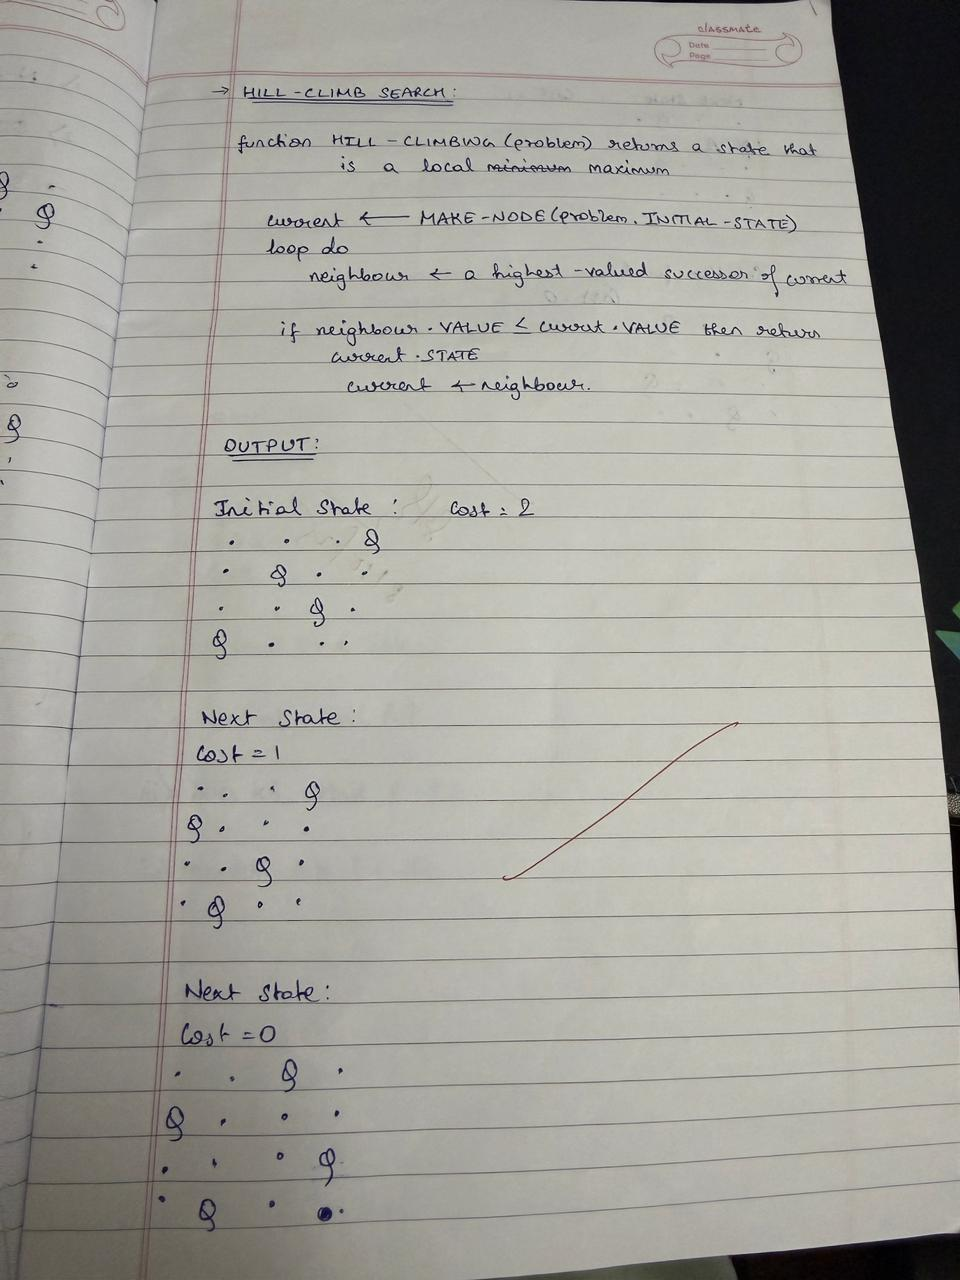 classmate
Date
Page
→ HILL-CLIMB SEARCH:
function HILL-CLIMBING (problem) returns a state that
is a local minimum maximum
current ← MAKE-NODE (problem. INITIAL-STATE)
loop do
neighbour ← a highest-valued successor of current
if neighbour.VALUE ≤ currut.VALUE then return
current.STATE
current ← neighbour.
OUTPUT:
Initial State : Cost = 2
. . . Q
. Q . .
. . Q .
Q . . .
Next State :
Cost = 1
. . . Q
Q . . .
. . Q .
. Q . .
Next State :
Cost = 0
. . Q .
Q . . .
. . . Q
. Q . .